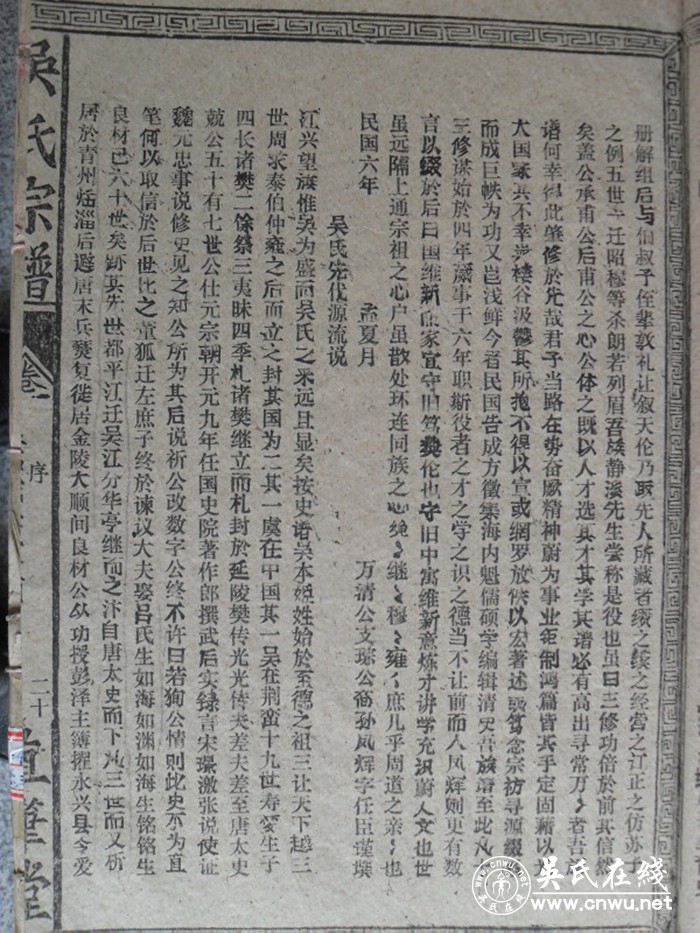 册解组后与伯叔子侄辈敦礼让叙天伦乃取先人所藏者续之续之经营之订正之仿苏子
之例五世一迁昭穆等杀朗若列眉吾族静溪先生尝称是役也虽曰三修功倍于前其信然
矣盖公承甫公后甫公之心公体之既以人才选其才其学其谱必有高出寻常万〻者吾
谱何幸得此肇修於先哉君子当路在势奋厥精神蔚为事业钜制鸿篇皆其手定固藉以
大国家其不幸岩栖谷汲郁其所抱不得以宣或网罗放佚以宏著述或笃念宗祊寻源缀
而成巨帙为功又岂浅鲜今者民国告成方徵集海内魁儒硕学编辑清史吾族谱至此凡
三修谋始於四年蒇事于六年职斯役者之才之学之识之德当不让前而人凤辉则更有数
言以缀於后曰国维新庶家宜守旧笃樊伦也守旧中寓维新意炼才讲学充识蔚人文也世
虽远隔上通宗祖之心户虽散处环连同族之心绳〻继〻穆〻雍〻庶几乎周道之亲〻也
民国六年 孟夏月 万清公支琮公裔孙凤辉字任臣谨撰
吴氏先代源流说
江兴望族惟吴为盛而吴氏之来远且显矣按史谱吴本姬姓始於至德之祖三让天下越三
世周求泰伯仲雍之后而立之封其国为二其一虞在中国其一吴在荆蛮十九世寿梦生子
四长诸樊二馀祭三夷昧四季札诸樊继立而札封於延陵樊传光光传夫差夫差至唐太史
兢公五十有七世公仕元宗朝开元九年任国史院著作郎撰武后实录言宋璟激张说使证
魏元忠事说修史见之知公所为其后说祈公改数字公终不许曰若狥公情则此史不为直
笔何以取信於后世比之董狐迁左庶子终於谏议大夫娶吕氏生如海如渊如海生铭铭生
良材已六十世矣跡其先世都平江迁吴江分华亭继而之汴自唐太史而下凡三世而又析
居於青州临淄后避唐末兵燹复徙居金陵大顺间良材公从功授彭泽主簿擢永兴县令爱
吴氏宗谱
卷一
序
二十
吴氏在线
www.cnwu.net